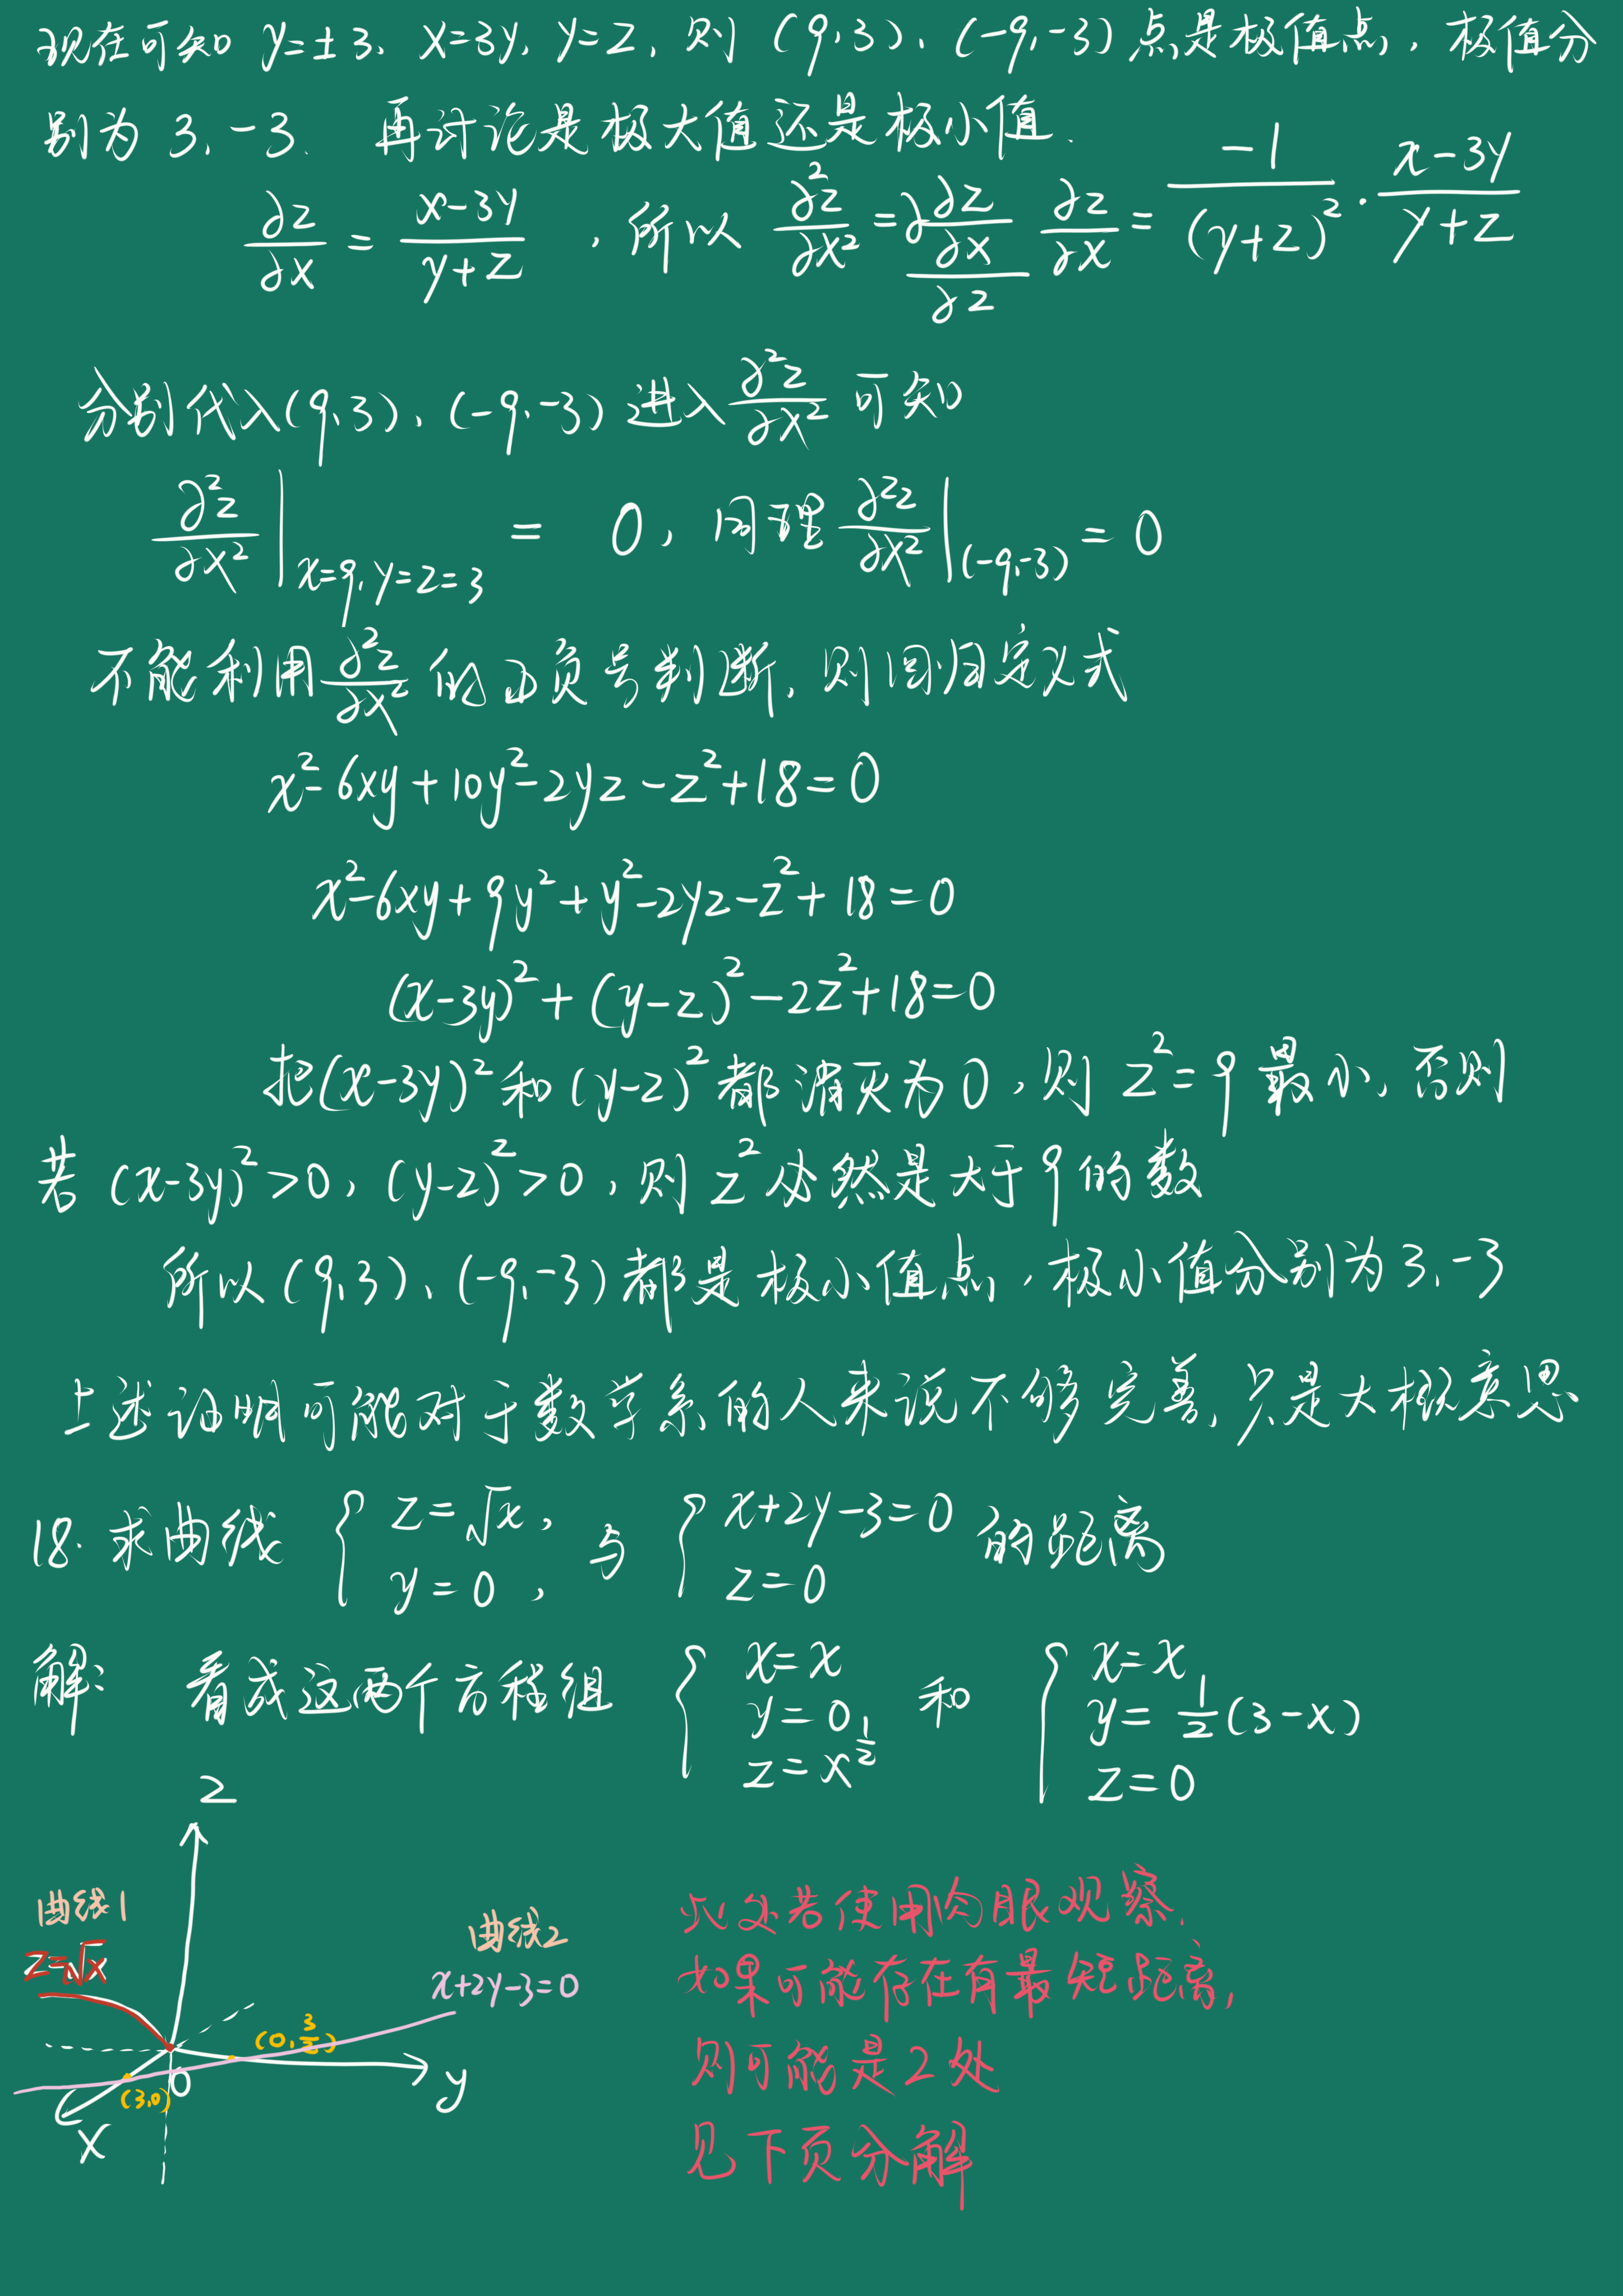 现在可知 y=±3、x=3y, y=z, 则 (9,3)、(-9,-3) 点是极值点，极值分
别为 3、-3. 再讨论是极大值还是极小值.
∂z/∂x = (x-3y)/(y+z)，所以 ∂²z/∂x² = (∂(∂z/∂x)/∂z) ∂z/∂x = -1/(y+z)² · (x-3y)/(y+z)
分别代入(9,3)、(-9,-3) 进入 ∂²z/∂x² 可知
∂²z/∂x² |x=9,y=z=3 = 0, 同理 ∂²z/∂x² |(-9,-3) = 0
不能利用 ∂²z/∂x² 的正负号判断, 则回归定义式
x²-6xy+10y²-2yz-z²+18=0
x²-6xy+9y²+y²-2yz-z²+18=0
(x-3y)²+(y-z)²-2z²+18=0
把(x-3y)²和(y-z)²都消灭为0, 则 z²=9最小, 否则
若 (x-3y)²>0, (y-z)²>0, 则 z²必然是大于9的数
所以 (9,3)、(-9,-3) 都是极小值点，极小值分别为3、-3
上述证明可能对于数学系的人来说不够完善, 只是大概意思
18. 求曲线 { z=√x, y=0, 与 { x+2y-3=0 z=0 的距离
解: 看成这两个方程组 { x=x y=0 z=x^½ 和 { x=x y=½(3-x) z=0
z
曲线1
z=√x
曲线2
x+2y-3=0
(0,3/2)
(3,0)
0
y
x
此处若使用肉眼观察,
如果可能存在有最短距离,
则可能是2处
见下页分解